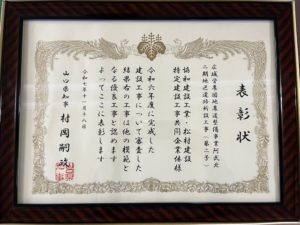 表彰状
広域営農団地農道整備事業阿武北
二期地区道路新設工事(第二号)
協和建設工業・松村建設
特定建設工事共同企業体様
令和六年度に完成した
建設工事について審査した
結果右の工事は他の模範と
なる優良工事と認めます
よってここに表彰します
令和七年十一月十八日
山口県知事 村岡嗣政